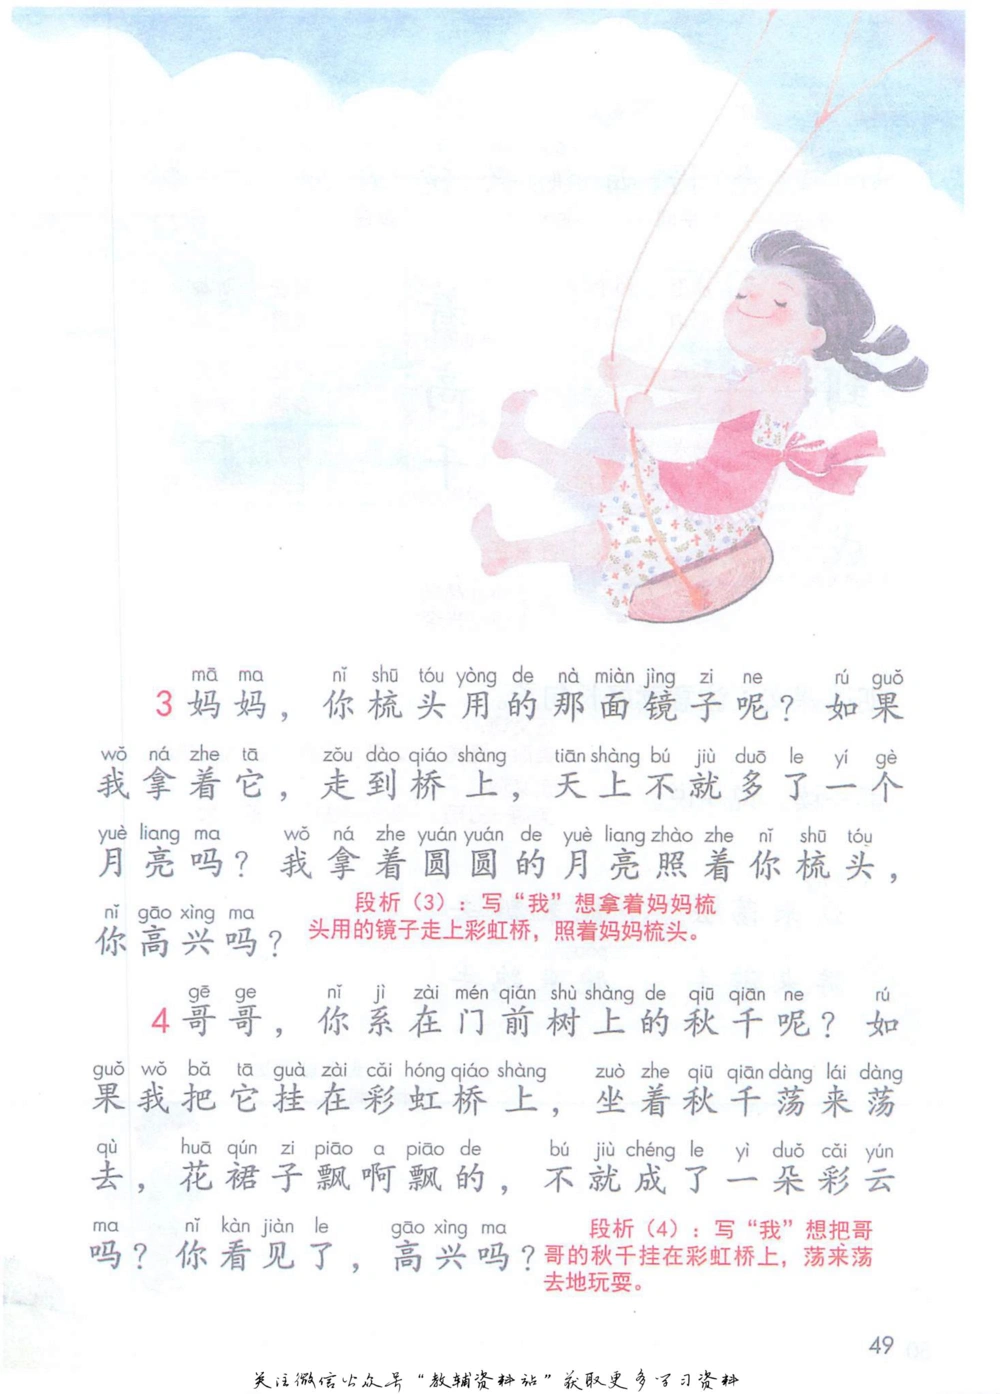 mā ma nǐ shū tóu yòng de nà miàn jìng zi ne rú guǒ
3 妈妈，你梳头用的那面镜子呢？如果
wǒ ná zhe tā zǒu dào qiáo shàng tiān shàng bú jiù duō le yí gè
我拿着它，走到桥上，天上不就多了一个
yuè liang ma wǒ ná zhe yuán yuán de yuè liang zhào zhe nǐ shū tóu
月亮吗？我拿着圆圆的月亮照着你梳头，
nǐ gāo xìng ma
你高兴吗？
段析（3）：写“我”想拿着妈妈梳
头用的镜子走上彩虹桥，照着妈妈梳头。
gē ge nǐ jì zài mén qián shù shàng de qiū qiān ne rú
4 哥哥，你系在门前树上的秋千呢？如
guǒ wǒ bǎ tā guà zài cǎi hóng qiáo shàng zuò zhe qiū qiān dàng lái dàng
果我把它挂在彩虹桥上，坐着秋千荡来荡
qù huā qún zi piāo a piāo de bú jiù chéng le yì duǒ cǎi yún
去，花裙子飘啊飘的，不就成了一朵彩云
ma nǐ kàn jiàn le gāo xìng ma
吗？你看见了，高兴吗？
段析（4）：写“我”想把哥
哥的秋千挂在彩虹桥上，荡来荡
去地玩耍。
49
关注微信公众号“教辅资料站”获取更多学习资料